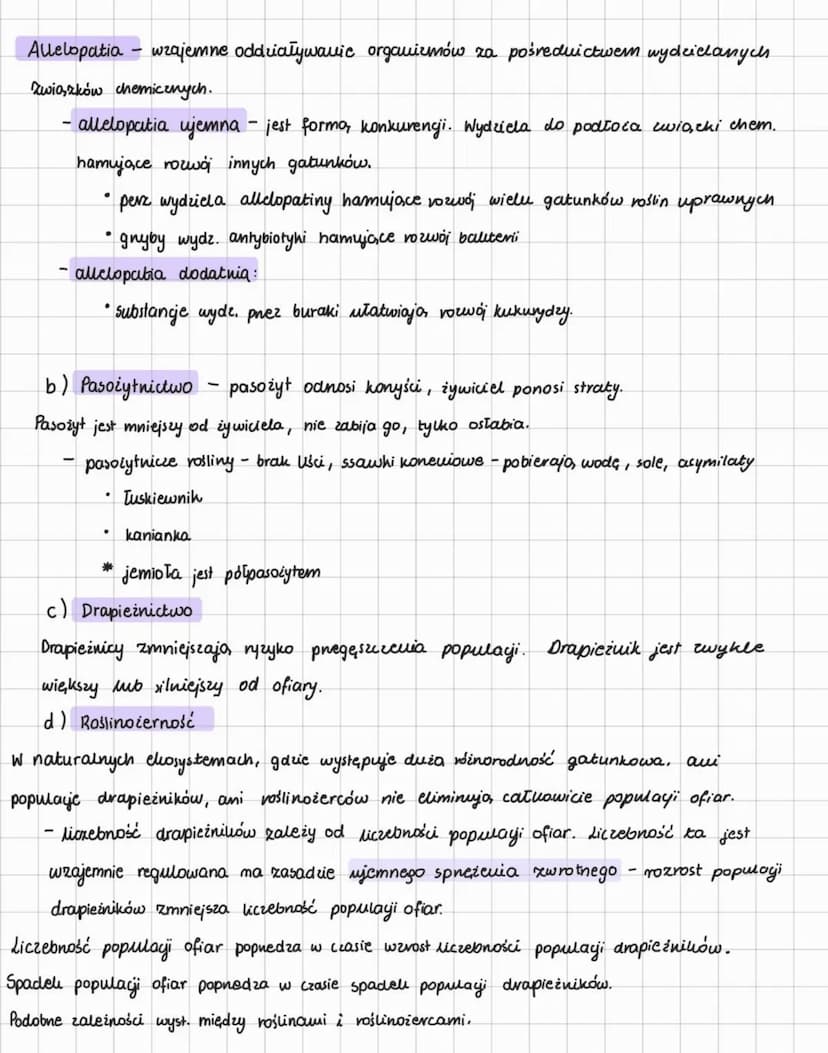 Allelopatia – wzajemne oddziaływanie organizmów za pośrednictwem wydzielanych
związków chemicznych.
– allelopatia ujemna – jest formą konkurencji. Wydziela do podłoża związki chem.
hamujące rozwój innych gatunków.
• perz wydziela allelopatiny hamujące rozwój wielu gatunków roślin uprawnych
• grzyby wydz. antybiotyki hamujące rozwój bakterii
– allelopatia dodatnia:
• substancje wydz. przez buraki ułatwiają rozwój kukurydzy.
b) Pasożytnictwo – pasożyt odnosi korzyści, żywiciel ponosi straty.
Pasożyt jest mniejszy od żywiciela, nie zabija go, tylko osłabia.
– pasożytnicze rośliny – brak liści, ssawki korzeniowe – pobierają wodę, sole, asymilaty
• łuskiewnik
• kanianka
* jemioła jest półpasożytem
c) Drapieżnictwo
Drapieżnicy zmniejszają ryzyko przegęszczenia populacji. Drapieżnik jest zwykle
większy lub silniejszy od ofiary.
d) Roślinożerność
W naturalnych ekosystemach, gdzie występuje duża różnorodność gatunkowa, ani
populacje drapieżników, ani roślinożerców nie eliminują całkowicie populacji ofiar.
– liczebność drapieżników zależy od liczebności populacji ofiar. Liczebność ta jest
wzajemnie regulowana na zasadzie ujemnego sprzężenia zwrotnego – rozrost populacji
drapieżników zmniejsza liczebność populacji ofiar.
Liczebność populacji ofiar poprzedza w czasie wzrost liczebności populacji drapieżników.
Spadek populacji ofiar poprzedza w czasie spadek populacji drapieżników.
Podobne zależności wyst. między roślinami i roślinożercami.